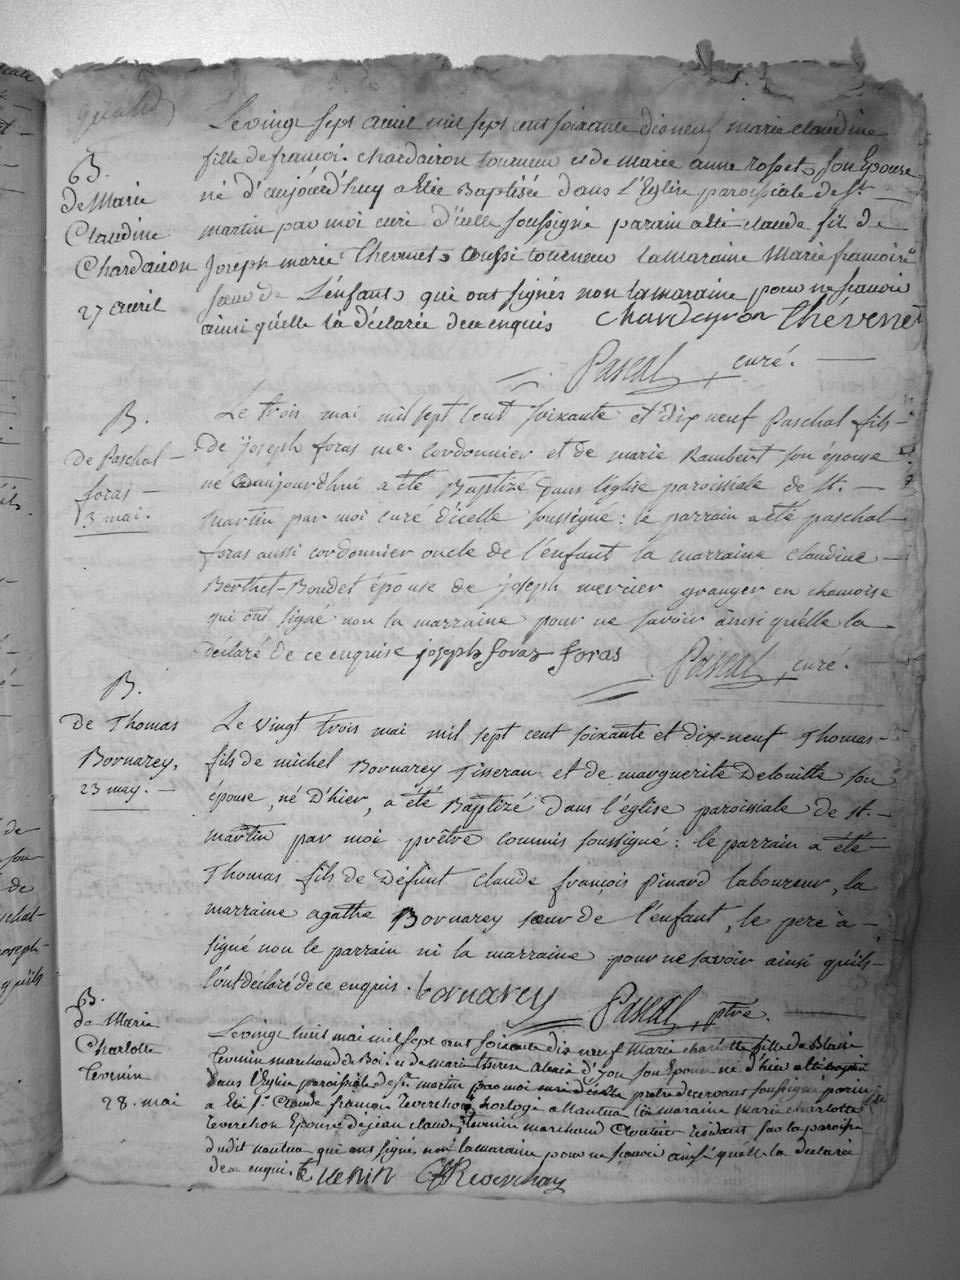 B.
de Marie
Claudine
Chardairon
27 avril
Le vingt sept avril mil sept cent soixante dix neuf marie claudine
fille de francoi. chardairon tourneur et de marie anne rosset son Epouse
né d'aujourd'huy a Eté Baptisée dans L'Eglise paroissiale de St.
martin par moi curé d'icelle soussigné parain a été claude fil de
Joseph marie Thevenet aussi tourneur la maraine Marie francoise
sœur de L'enfant qui ont signés non la maraine pour ne scavoir
ainsi qu'elle la déclarée de ce enquis chardeyron Thévenet
Pascal curé.
B.
de Paschal
foras
3 mai.
Le trois mai mil sept cent soixante et dix neuf Paschal fils
de joseph foras me. cordonnier et de marie Rambert son épouse
né aujourdhui a été Baptizé dans l'église paroissiale de St.
martin par moi curé d'icelle soussigné : le parrain a été paschal
foras aussi cordonnier oncle de l'enfant la marraine claudine
Berthet-Bondet épouse de joseph mercier granger en chamoise
qui ont signé non la marraine pour ne savoir ainsi qu'elle la
déclaré de ce enquise joseph foras foras
Pascal curé.
B.
de Thomas
Bornarey.
23 may.
Le vingt trois mai mil sept cent soixante et dix-neuf Thomas
fils de michel Bornarey Tisseran et de marguerite Delouille son
épouse, né D'hier, a été Baptizé dans l'église paroissiale de St.
martin par moi prêtre commis soussigné : le parrain a été
Thomas fils de Défunt claude françois Pinard laboureur, la
marraine agathe Bornarey sœur de l'enfant, le pere a
signé non le parrain ni la marraine pour ne savoir ainsi qu'ils
l'ont déclaré de ce enquis. bornarey Pascal, ptre.
B.
de Marie
Charlotte
Tevenin
28. mai
Le vingt huit mai mil sept cent soixante dix neuf Marie charlotte fille de Blaise
Tevenin marchand de Boi. et de marie son Epouse né d'hier a été baptisé
dans l'Eglise paroissiale de St. martin par moi prêtre desservant soussigné parin
a Eté Sr. Claude françoi. Reverchon horlogé a Nantua la maraine Marie charlotte
Reverchon Epouse de jean claude Tevenin marchand Cloutier résidant sur la paroisse
dudit nantua qui ont signés non la maraine pour ne scavoir ainsi qu'elle la déclarée
de ce enqui.